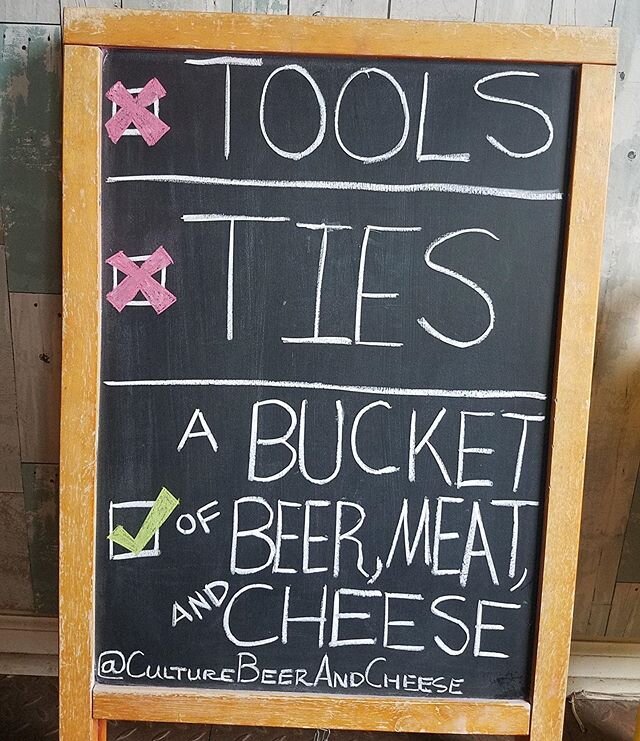 TOOLS
TIES
A BUCKET
OF BEER, MEAT,
AND CHEESE
@CULTUREBEERANDCHEESE